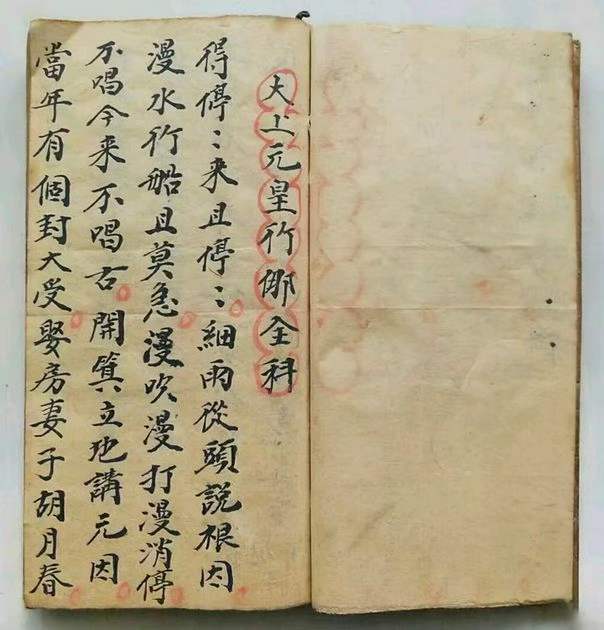 大上元皇行郍全科
得停〻来且停〻細雨從頭說根因
漫水行船且莫急漫吹漫打漫消停
不唱今来不唱古開篢立地講元因
當年有個封大受娶房妻子胡月春